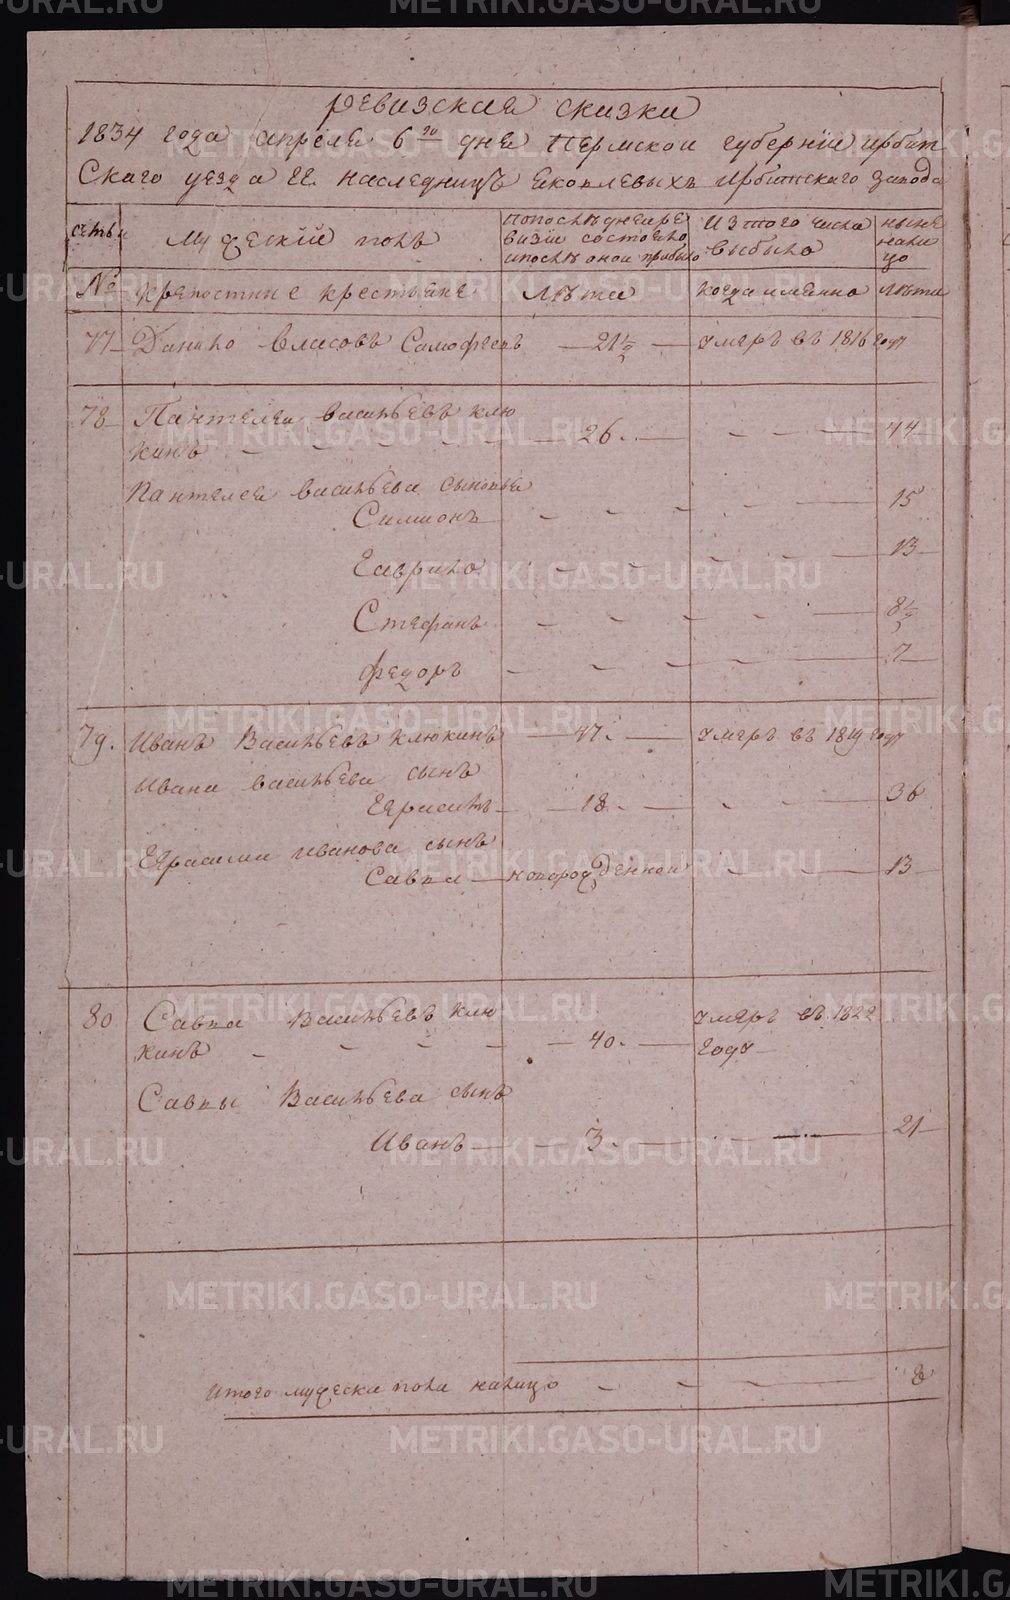 ревизская сказка
1834 года апреля 6го дня Пермской губернїи ирбит
Скаго уезда ГГ. наследницъ Яковлевыхъ Ирбитскаго завода
семьи
Мужескїй полъ
по последней ре
визїи состояло
и после оной прибыло
Изъ того числа
выбыло
ныне
на ли
цо
№
крепостные крестьяне
Лета
когда имянно
лета
77 Данило Власовъ 21½ умеръ въ 1816 году
78 Пантелей Васильевъ клю
кинъ 26. 44
Пантелея Васильева сыновья
Симионъ 15
Гаврило 13
Стефанъ 8½
Федоръ 7
79. Иванъ Васильевъ Клюкинъ 47. умеръ въ 1819 году
Ивана васильева сынъ
Герасимъ 18. 36
Герасима иванова сынъ
Савва новорожденной 13
80 Савва Васильевъ клю
кинъ 40. умеръ въ 1822
году
Саввы Васильева сынъ
Иванъ 3. 21
итого мужеска пола налицо 8
METRIKI.GASO-URAL.RU